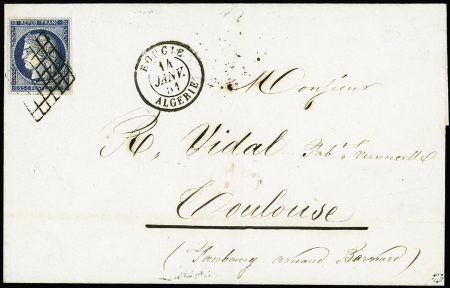 REPUB. FRANC.
BOUGIE
14
JANV.
51
ALGERIE
Monsieur
R. Vidal Fab.t à Vermicelle
Toulouse
(Faubourg arnaud Bernard)